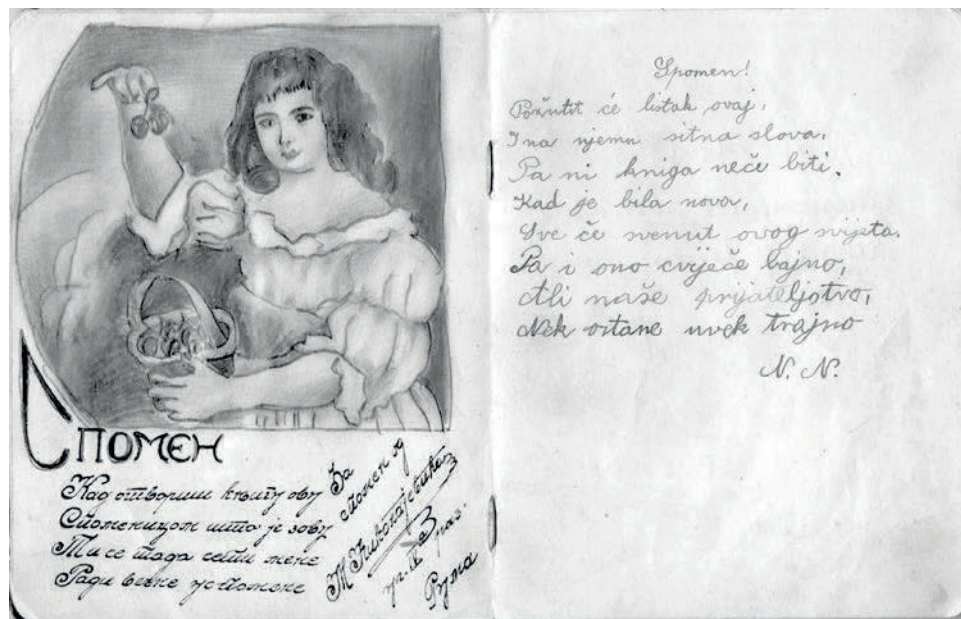 СПОМЕН
Кад отвориш књигу ову
Споменицом што је зову
Ти се тада сети мене
Ради вечне успомене
За
спомен од
М Николајевића
уч. IV 3 раз.
Рума
Spomen!
Požutit će listak ovaj,
I na njemu sitna slova,
Pa ni kniga neče biti,
Kad je bila nova,
Sve če svenut ovog svijeta,
Pa i ono cviječe bajno,
Ali naše prijateljstvo,
Nek ostane uvek trajno
N. N.